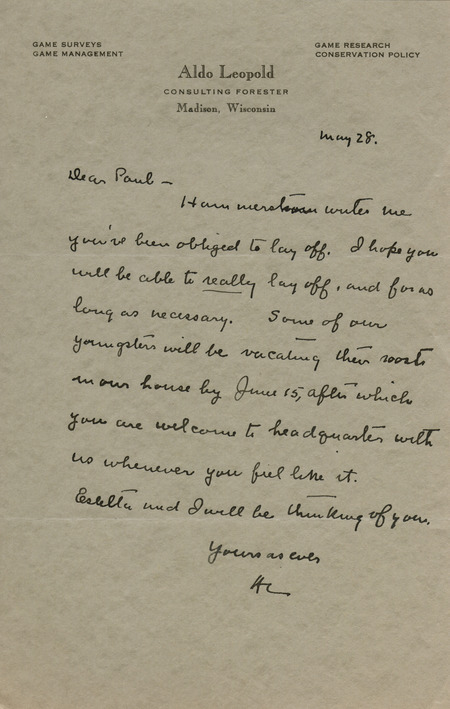 GAME SURVEYS
GAME MANAGEMENT
GAME RESEARCH
CONSERVATION POLICY
Aldo Leopold
CONSULTING FORESTER
Madison, Wisconsin
May 28.
Dear Paul —
writes me
you've been obliged to lay off. I hope you
will be able to really lay off, and for as
long as necessary. Some of our
youngsters will be vacating their roosts
in our house by June 15, after which
you are welcome to headquarter with
us whenever you feel like it.
Estella and I will be thinking of you.
Yours as ever
AL